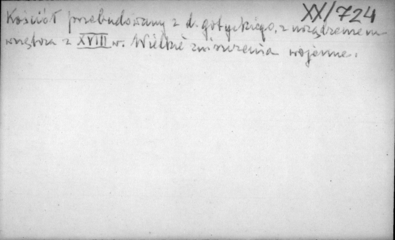 XX/724
Kościół przebudowany z d. gotyckiego, z urządzeniem
wnętrza z XVIII w. Wielkie zniszczenia wojenne.